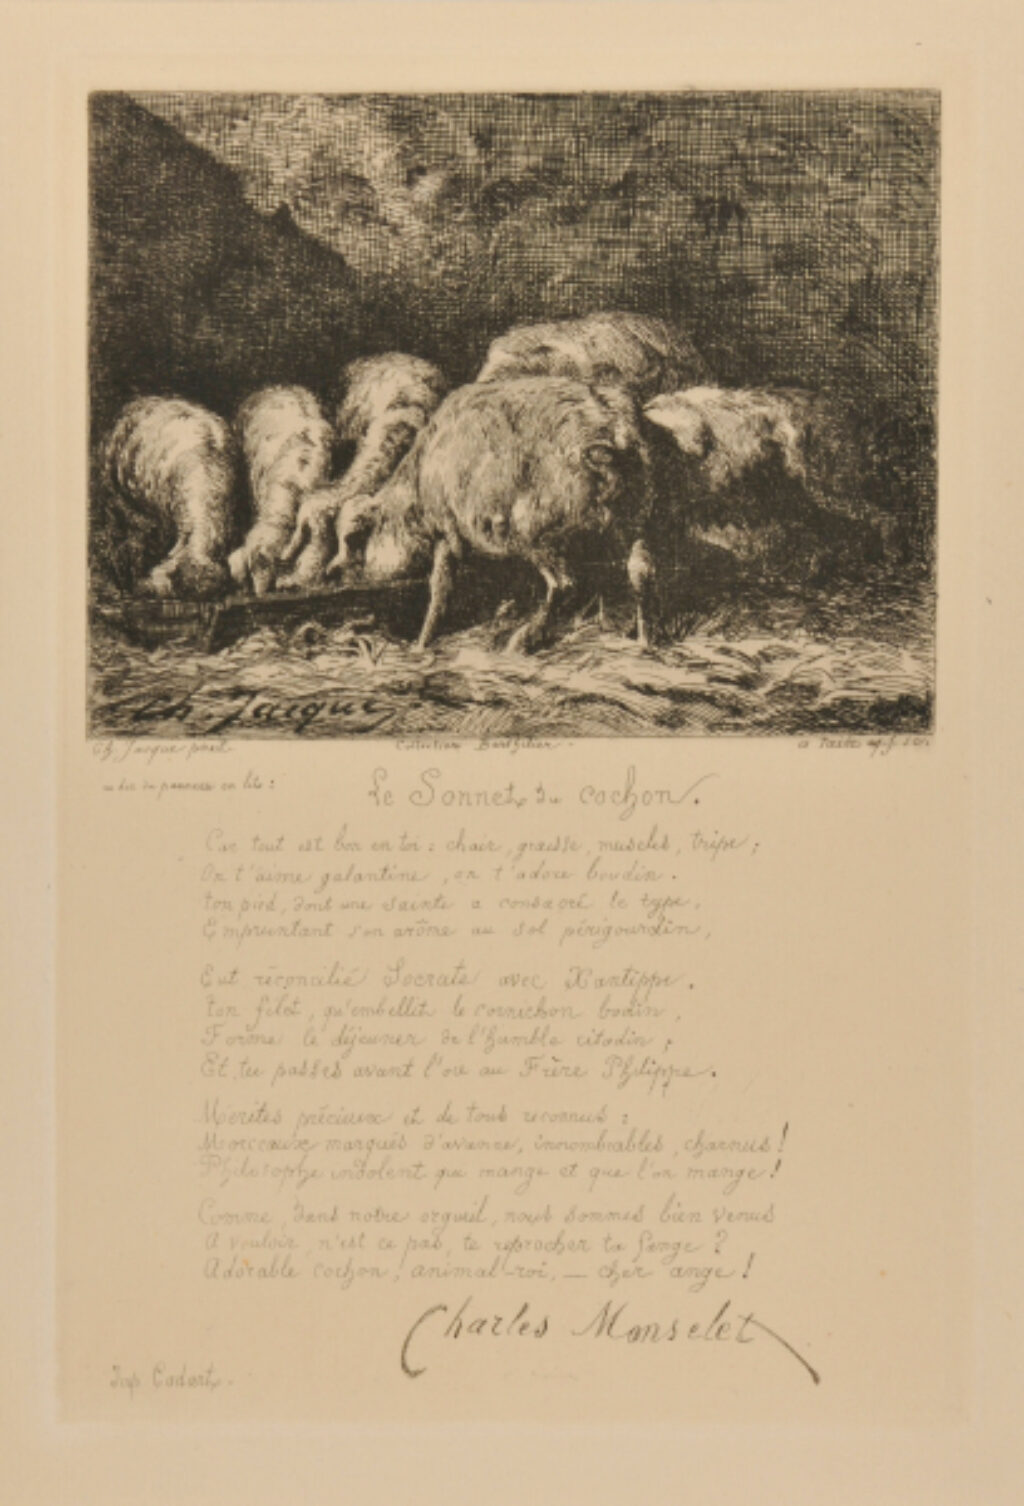 Ch. Jacque
Ch. Jacque pinxt
Collection Barthelier.
A
au dos du panneau on lit :
Le Sonnet du cochon.
Car tout est bon en toi : chair, graisse, muscles, tripe ;
On t'aime galantine, on t'adore boudin.
Ton pied, dont une sainte a consacré le type,
Empruntant son arôme au sol périgourdin,
Eut réconcilié Socrate avec Xantippe.
Ton filet, qu'embellit le cornichon badin,
Forme le déjeuner de l'humble citadin ;
Et tu passes avant l'oie au Frère Philippe.
Mérites précieux et de tous reconnus :
Morceaux marqués d'avance, innombrables, charnus !
Philosophe indolent qui mange et que l'on mange !
Comme, dans notre orgueil, nous sommes bien venus
A vouloir, n'est ce pas, te reprocher ta fange ?
Adorable cochon, animal-roi, — cher ange !
Charles Monselet
Imp Cadart.